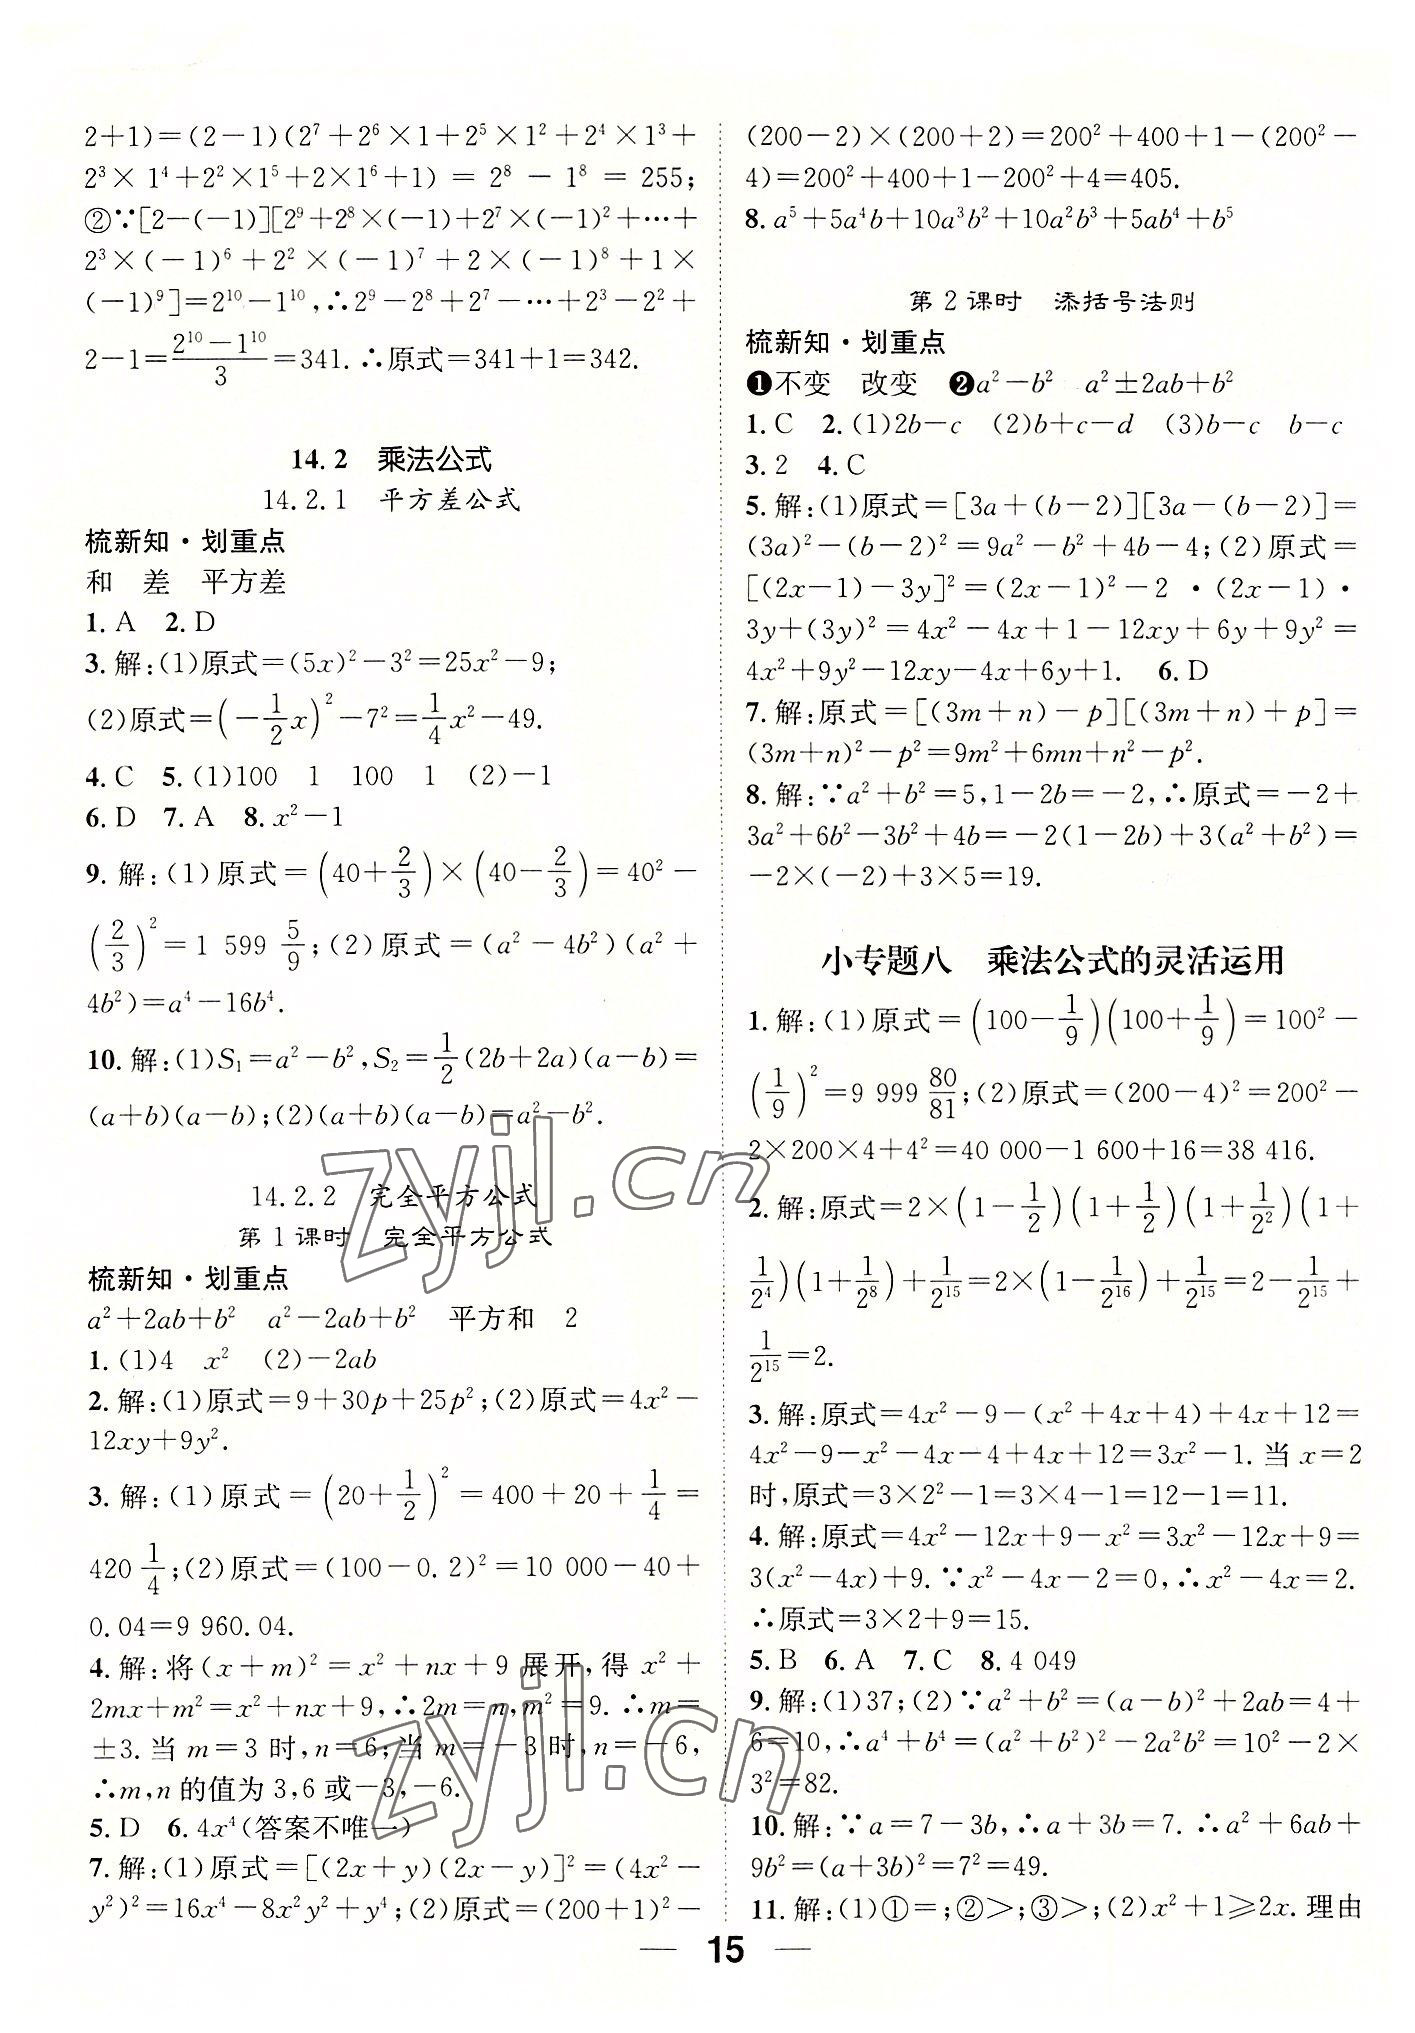 2+1)=(2-1)(2⁷+2⁶×1+2⁵×1²+2⁴×1³+
2³×1⁴+2²×1⁵+2×1⁶+1)=2⁸-1⁸=255;
②∵[2-(-1)][2⁹+2⁸×(-1)+2⁷×(-1)²+…+
2³×(-1)⁶+2²×(-1)⁷+2×(-1)⁸+1×
(-1)⁹]=2¹⁰-1¹⁰,∴2⁹-2⁸+2⁷-…+2³-2²+
2-1=(2¹⁰-1¹⁰)/3=341.∴原式=341+1=342.
14.2 乘法公式
14.2.1 平方差公式
梳新知·划重点
和 差 平方差
1.A 2.D
3.解:(1)原式=(5x)²-3²=25x²-9;
(2)原式=(-1/2x)²-7²=1/4x²-49.
4.C 5.(1)100 1 100 1 (2)-1
6.D 7.A 8.x²-1
9.解:(1)原式=(40+2/3)×(40-2/3)=40²-
(2/3)²=1 599 5/9;(2)原式=(a²-4b²)(a²+
4b²)=a⁴-16b⁴.
10.解:(1)S₁=a²-b²,S₂=1/2(2b+2a)(a-b)=
(a+b)(a-b);(2)(a+b)(a-b)=a²-b².
14.2.2 完全平方公式
第1课时 完全平方公式
梳新知·划重点
a²+2ab+b² a²-2ab+b² 平方和 2
1.(1)4 x² (2)-2ab
2.解:(1)原式=9+30p+25p²;(2)原式=4x²-
12xy+9y².
3.解:(1)原式=(20+1/2)²=400+20+1/4=
420 1/4;(2)原式=(100-0.2)²=10 000-40+
0.04=9 960.04.
4.解:将(x+m)²=x²+nx+9展开,得x²+
2mx+m²=x²+nx+9,∴2m=n,m²=9.∴m=
±3.当m=3时,n=6;当m=-3时,n=-6,
∴m,n的值为3,6或-3,-6.
5.D 6.4x⁴(答案不唯一)
7.解:(1)原式=[(2x+y)(2x-y)]²=(4x²-
y²)²=16x⁴-8x²y²+y⁴;(2)原式=(200+1)²-
(200-2)×(200+2)=200²+400+1-(200²-
4)=200²+400+1-200²+4=405.
8.a⁵+5a⁴b+10a³b²+10a²b³+5ab⁴+b⁵
第2课时 添括号法则
梳新知·划重点
❶不变 改变 ❷a²-b² a²±2ab+b²
1.C 2.(1)2b-c (2)b+c-d (3)b-c b-c
3.2 4.C
5.解:(1)原式=[3a+(b-2)][3a-(b-2)]=
(3a)²-(b-2)²=9a²-b²+4b-4;(2)原式=
[(2x-1)-3y]²=(2x-1)²-2·(2x-1)·
3y+(3y)²=4x²-4x+1-12xy+6y+9y²=
4x²+9y²-12xy-4x+6y+1. 6.D
7.解:原式=[(3m+n)-p][(3m+n)+p]=
(3m+n)²-p²=9m²+6mn+n²-p².
8.解:∵a²+b²=5,1-2b=-2,∴原式=-2+
3a²+6b²-3b²+4b=-2(1-2b)+3(a²+b²)=
-2×(-2)+3×5=19.
小专题八 乘法公式的灵活运用
1.解:(1)原式=(100-1/9)(100+1/9)=100²-
(1/9)²=9 999 80/81;(2)原式=(200-4)²=200²-
2×200×4+4²=40 000-1 600+16=38 416.
2.解:原式=2×(1-1/2)(1+1/2)(1+1/2²)(1+
1/2⁴)(1+1/2⁸)+1/2¹⁵=2×(1-1/2¹⁶)+1/2¹⁵=2-1/2¹⁵+
1/2¹⁵=2.
3.解:原式=4x²-9-(x²+4x+4)+4x+12=
4x²-9-x²-4x-4+4x+12=3x²-1.当x=2
时,原式=3×2²-1=3×4-1=12-1=11.
4.解:原式=4x²-12x+9-x²=3x²-12x+9=
3(x²-4x)+9.∵x²-4x-2=0,∴x²-4x=2.
∴原式=3×2+9=15.
5.B 6.A 7.C 8.4 049
9.解:(1)37;(2)∵a²+b²=(a-b)²+2ab=4+
6=10,∴a⁴+b⁴=(a²+b²)²-2a²b²=10²-2×
3²=82.
10.解:∵a=7-3b,∴a+3b=7.∴a²+6ab+
9b²=(a+3b)²=7²=49.
11.解:(1)①=;②>;③>;(2)x²+1≥2x.理由
— 15 —
zyjl.cn
zyjl.cn